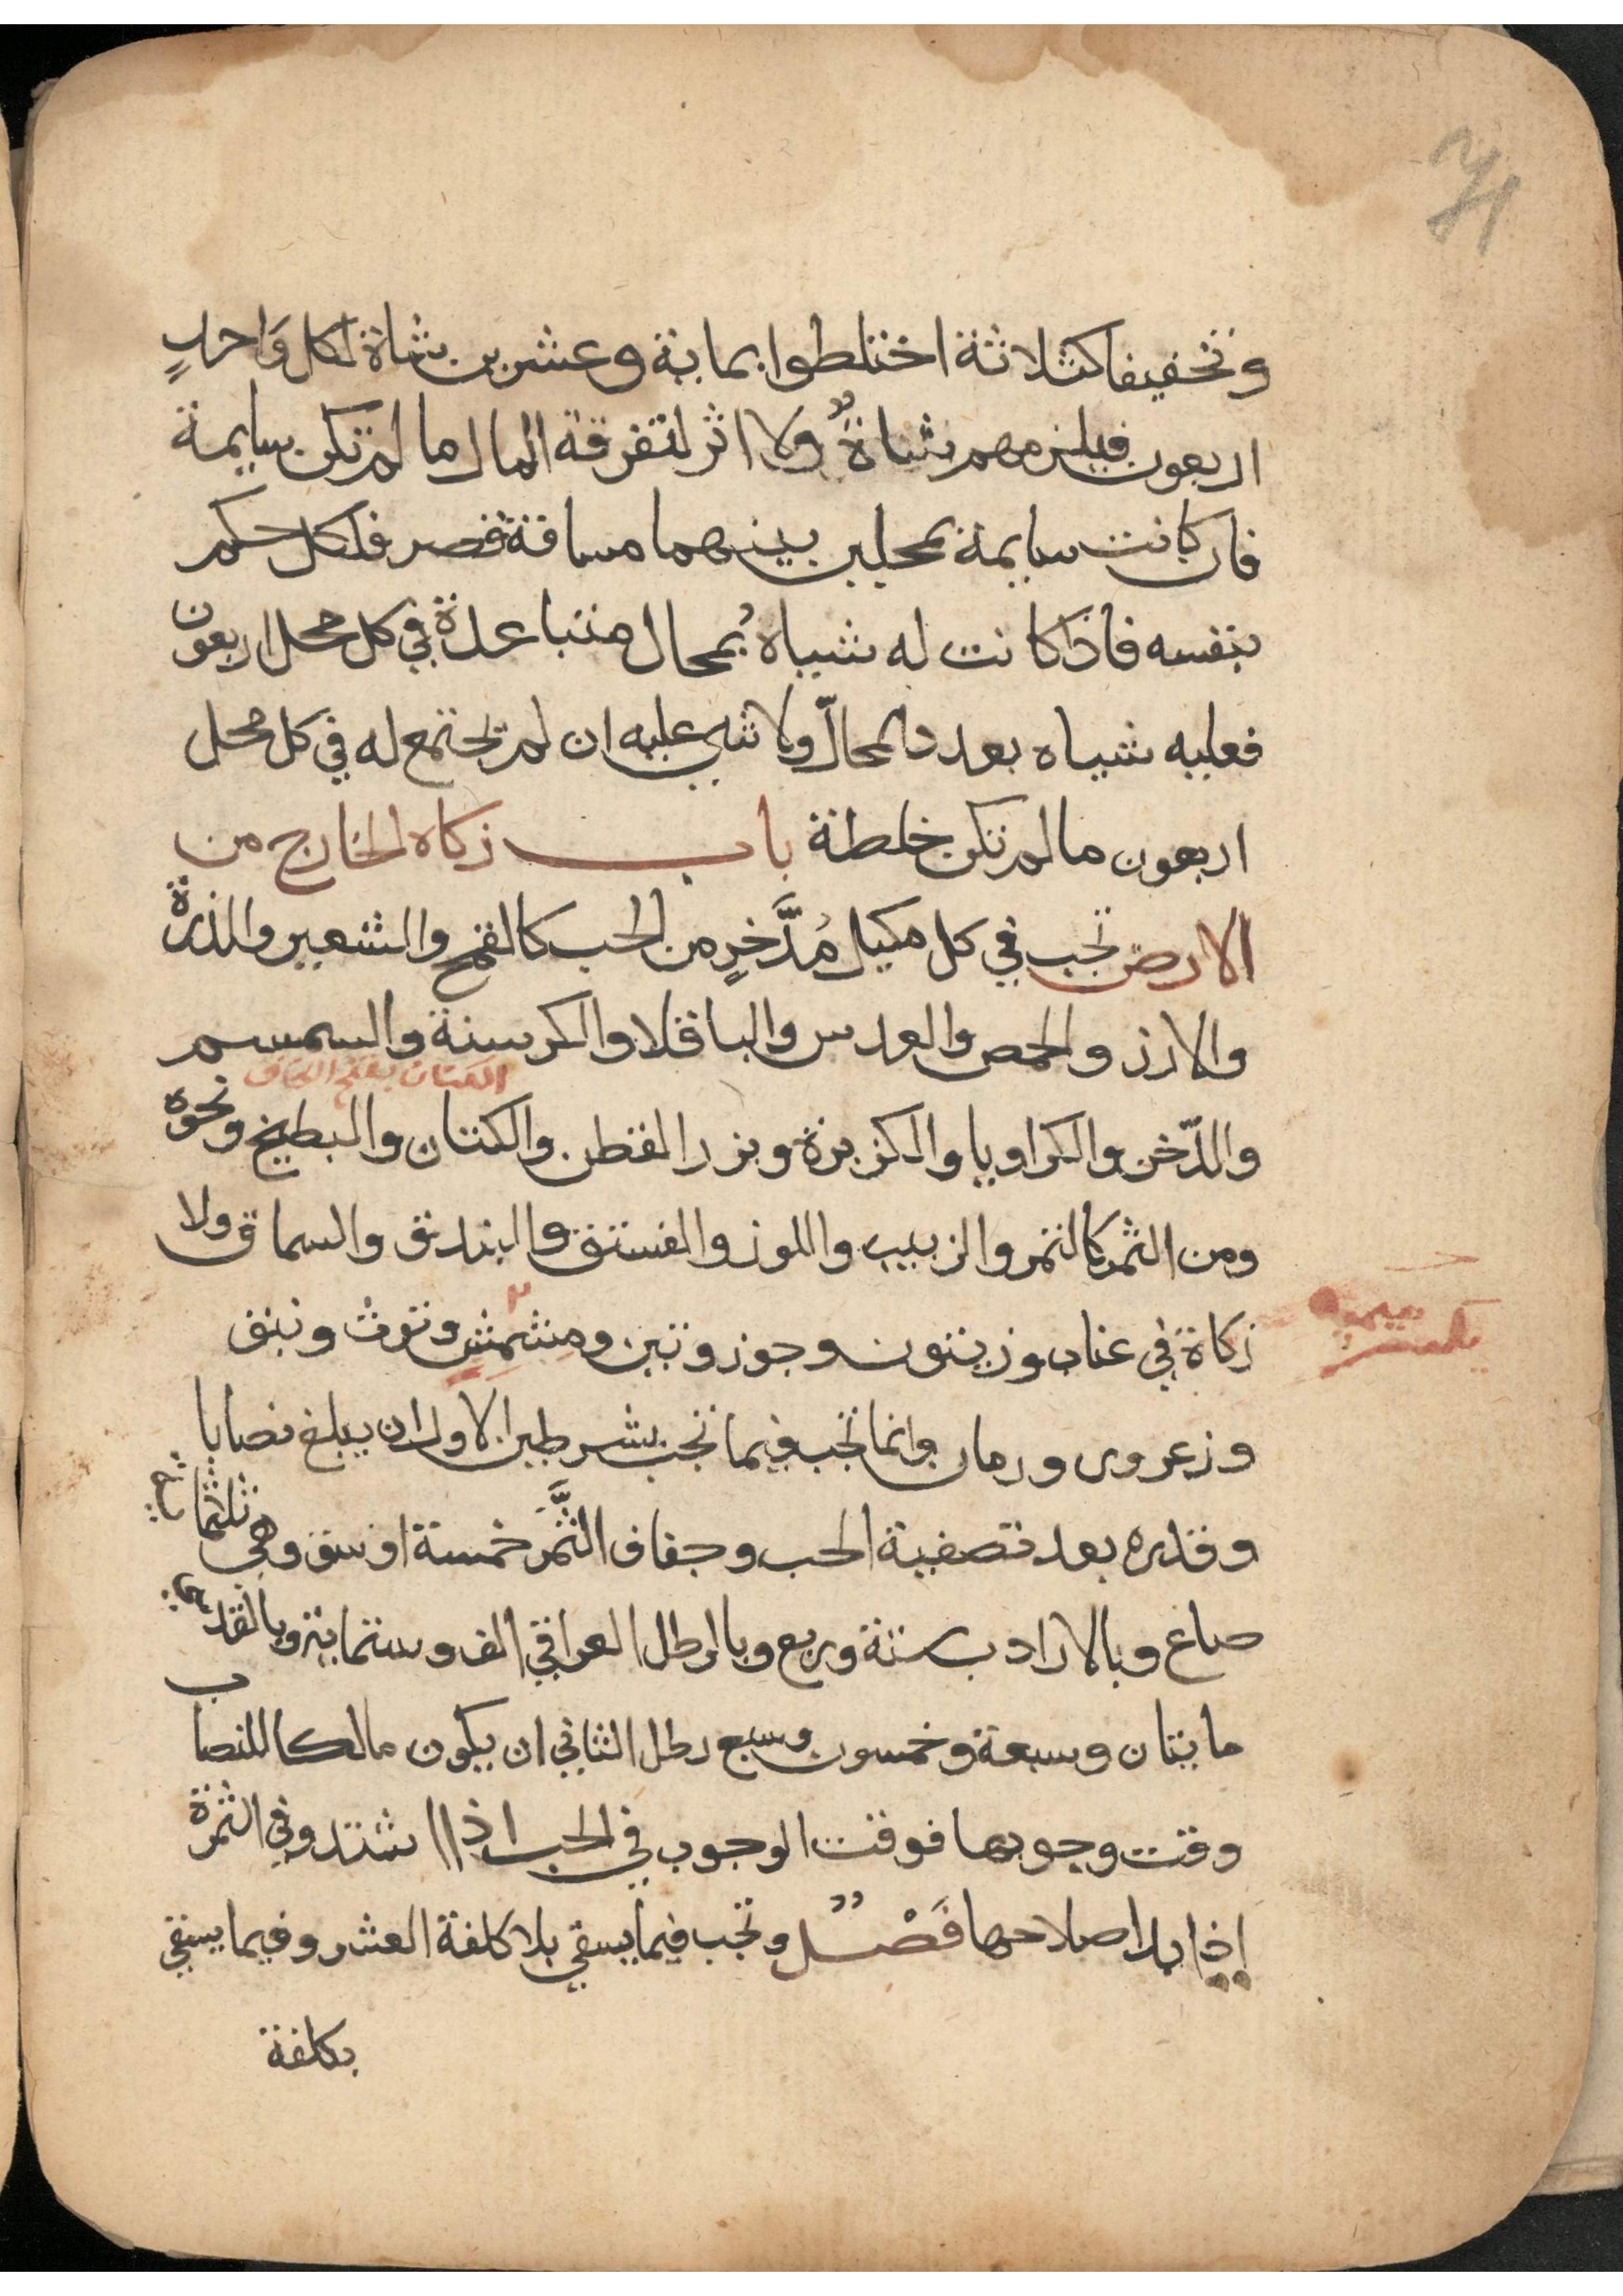 وتخفيفا كثلاثة اختلطوا بماية وعشرين شاة لكل وَاحدٍ
اربعون فيلزمهم شاة ولا اثر لتفرقة المال ما لم تكن سايمة
فان كانت سايمة بمحلين بينهما مسافة قصر فلكل حكم
بنفسه فاذا كانت له شياه بمحال متباعدة في كل محل اربعون
فعليه شياه بعدد المحالّ ولا شي عليه ان لم تجتمع له في كل محل
اربعون ما لم تكن خلطة باب زكاه الخارج من
الارض تجب في كل مكيل مُدَّخرٍ من الحب كالقمح والشعير والذرة
والارز والحمص والعدس والباقلا والكرسنة والسمسم
الكتان بفتح الكاف
والدّخن والكراويا والكزبرة وبزر القطن والكتان والبطيخ ونحوه
ومن الثمر كالتمر والزبيب واللوز والفستق والبندق والسماق ولا
زكاة في عناب وزيتون وجوز وتين ومِشمِش وتوت ونبق
بكسر ميميه
وزعرور ورمان وانما تجب فيما تجب بشرطين الاول ان يبلغ نصابا
وقدره بعد تصفية الحب وجفاف الثَّمَر خمسة اوسق وهي ثلثماية
صاع وبالارادب ستة وربع وبالرطل العراقي الف وستماية وبالقدسي
مايتان وسبعة وخمسون وسبع رطل الثاني ان يكون مالكا للنصاب
وقت وجوبها فوقت الوجوب في الحب اذا اشتد وفي الثمرة
إذا بدا صلاحها فَصْل وتجب فيما يسقي بلا كلفة العشر وفيما يسقي
بكلفة